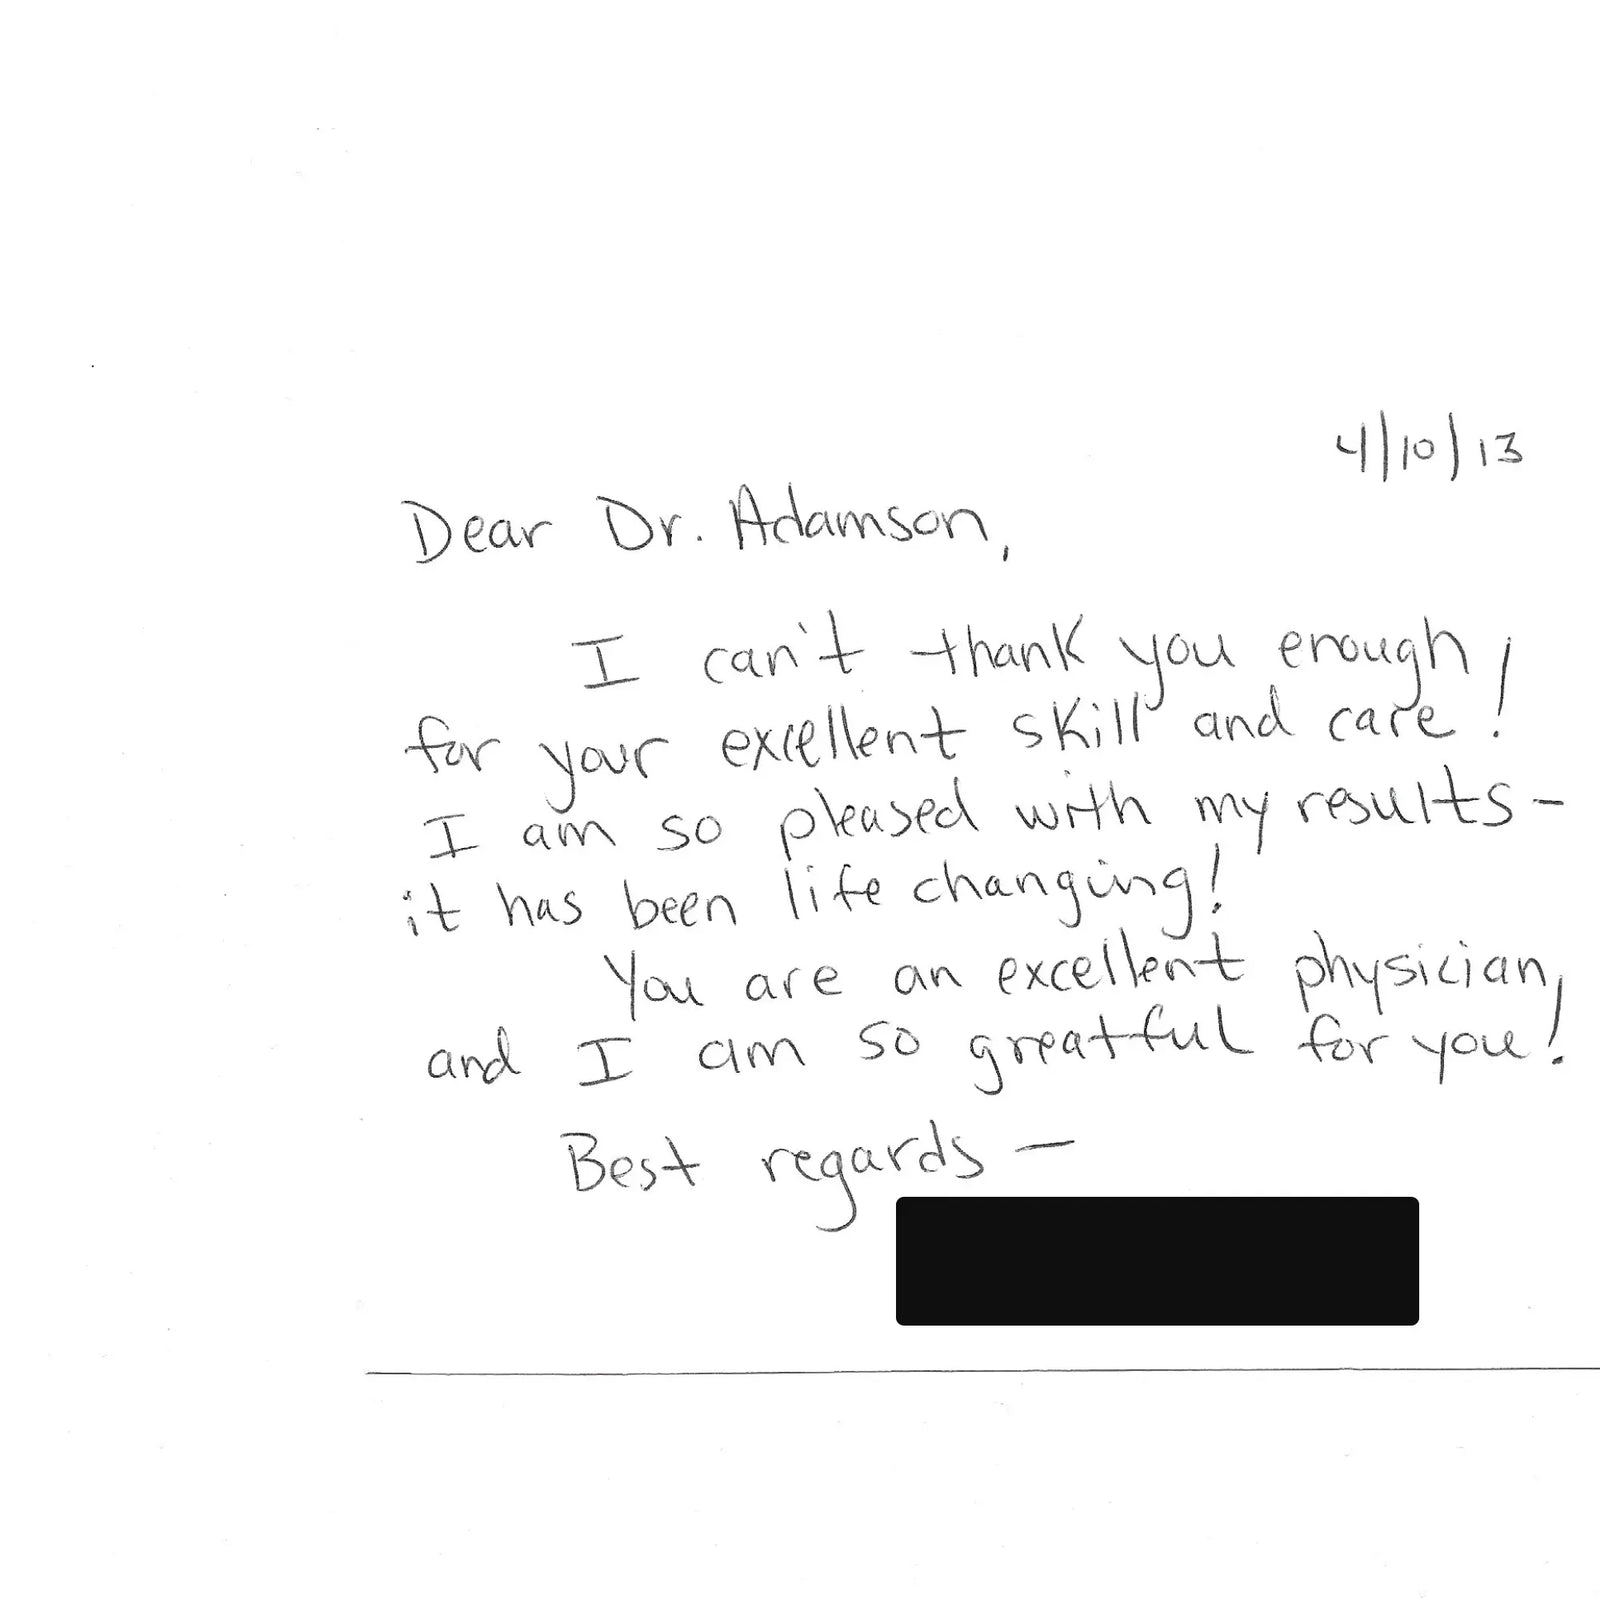 4/10/13
Dear Dr. Adamson,
I can't thank you enough
for your excellent skill and care!
I am so pleased with my results -
it has been life changing!
You are an excellent physician,
and I am so greatful for you!
Best regards -